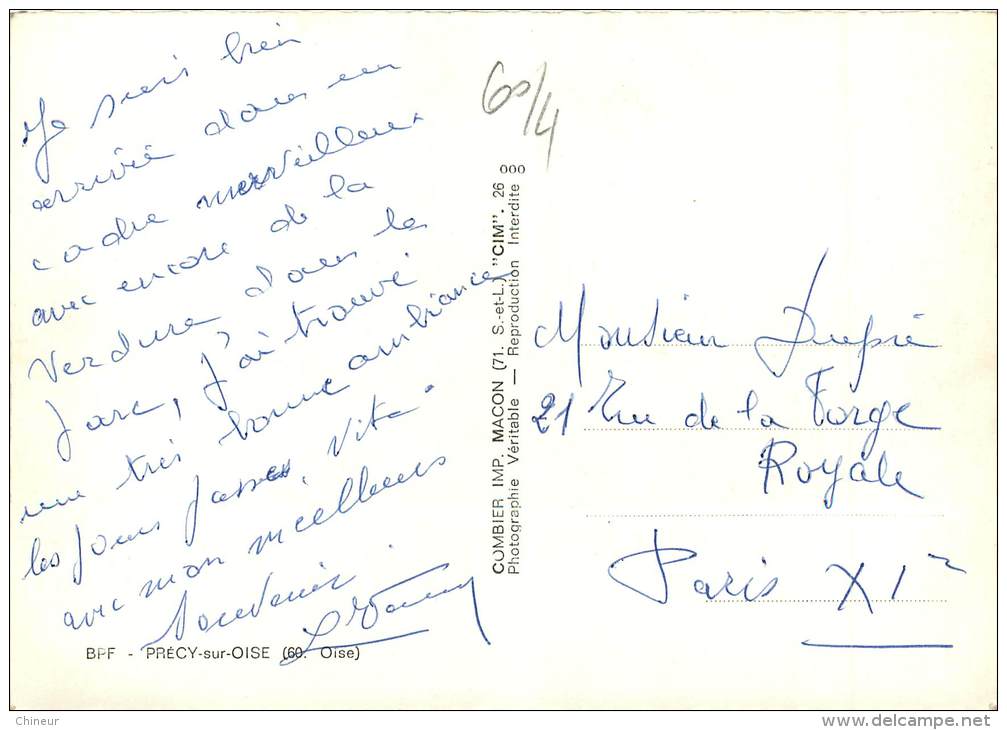 Je suis bien
arrivée dans un
cadre merveilleux
avec encore de la
verdure dans les
parc, j'ai trouvé
une très bonne ambiance
les jours passes. Vite
avec mon meilleurs
Souvenir
BPF - PRÉCY-sur-OISE (60. Oise)
60/4
COMBIER IMP. MACON (71. S.-et-L.) "CIM". 26 000
Photographie Véritable — Reproduction Interdite
Monsieur
21 Rue de la Forge
Royale
Paris XIe
Chineur
delcampe.net